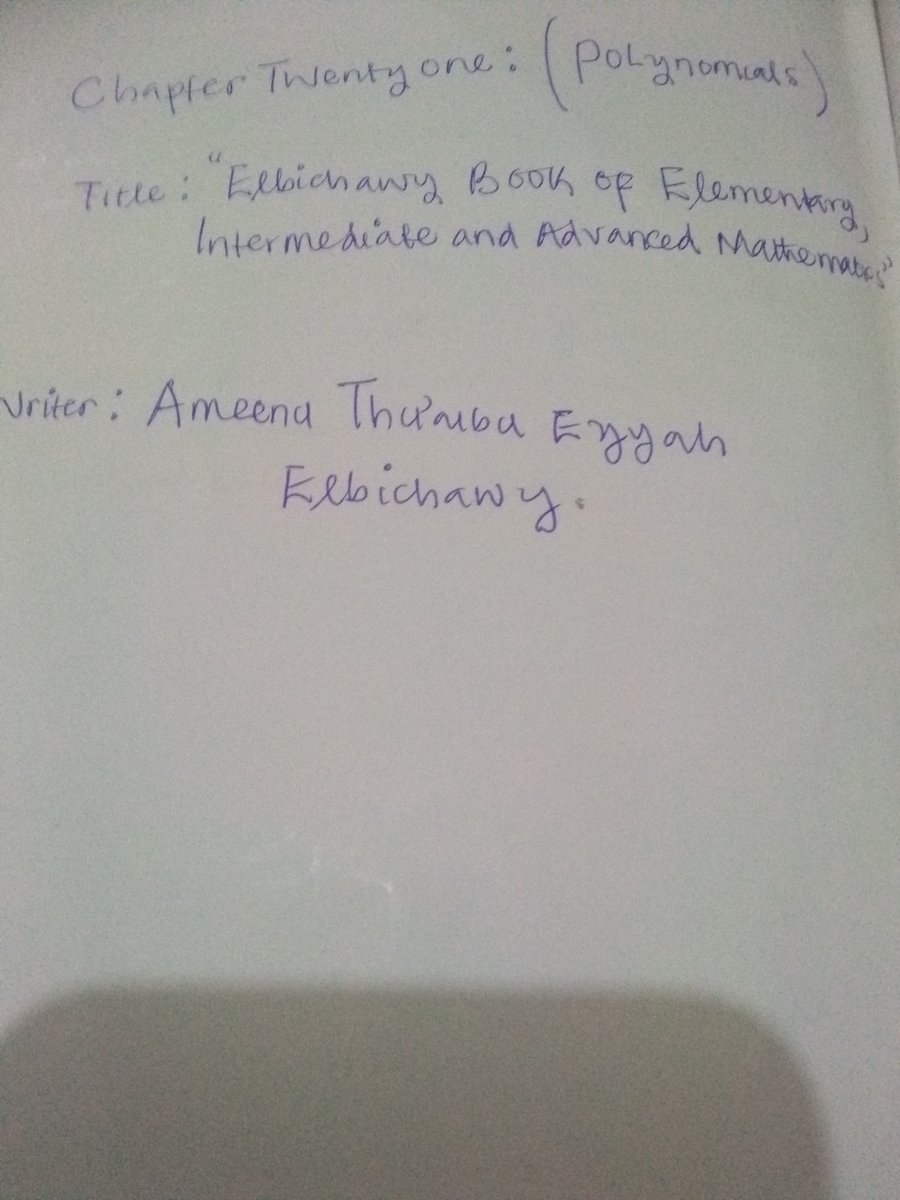 Chapter Twenty one: (Polynomials)
Title: "Elbichawy Book of Elementary,
Intermediate and Advanced Mathematics"
Writer: Ameena Tha'mba Ezyah
Elbichawy.